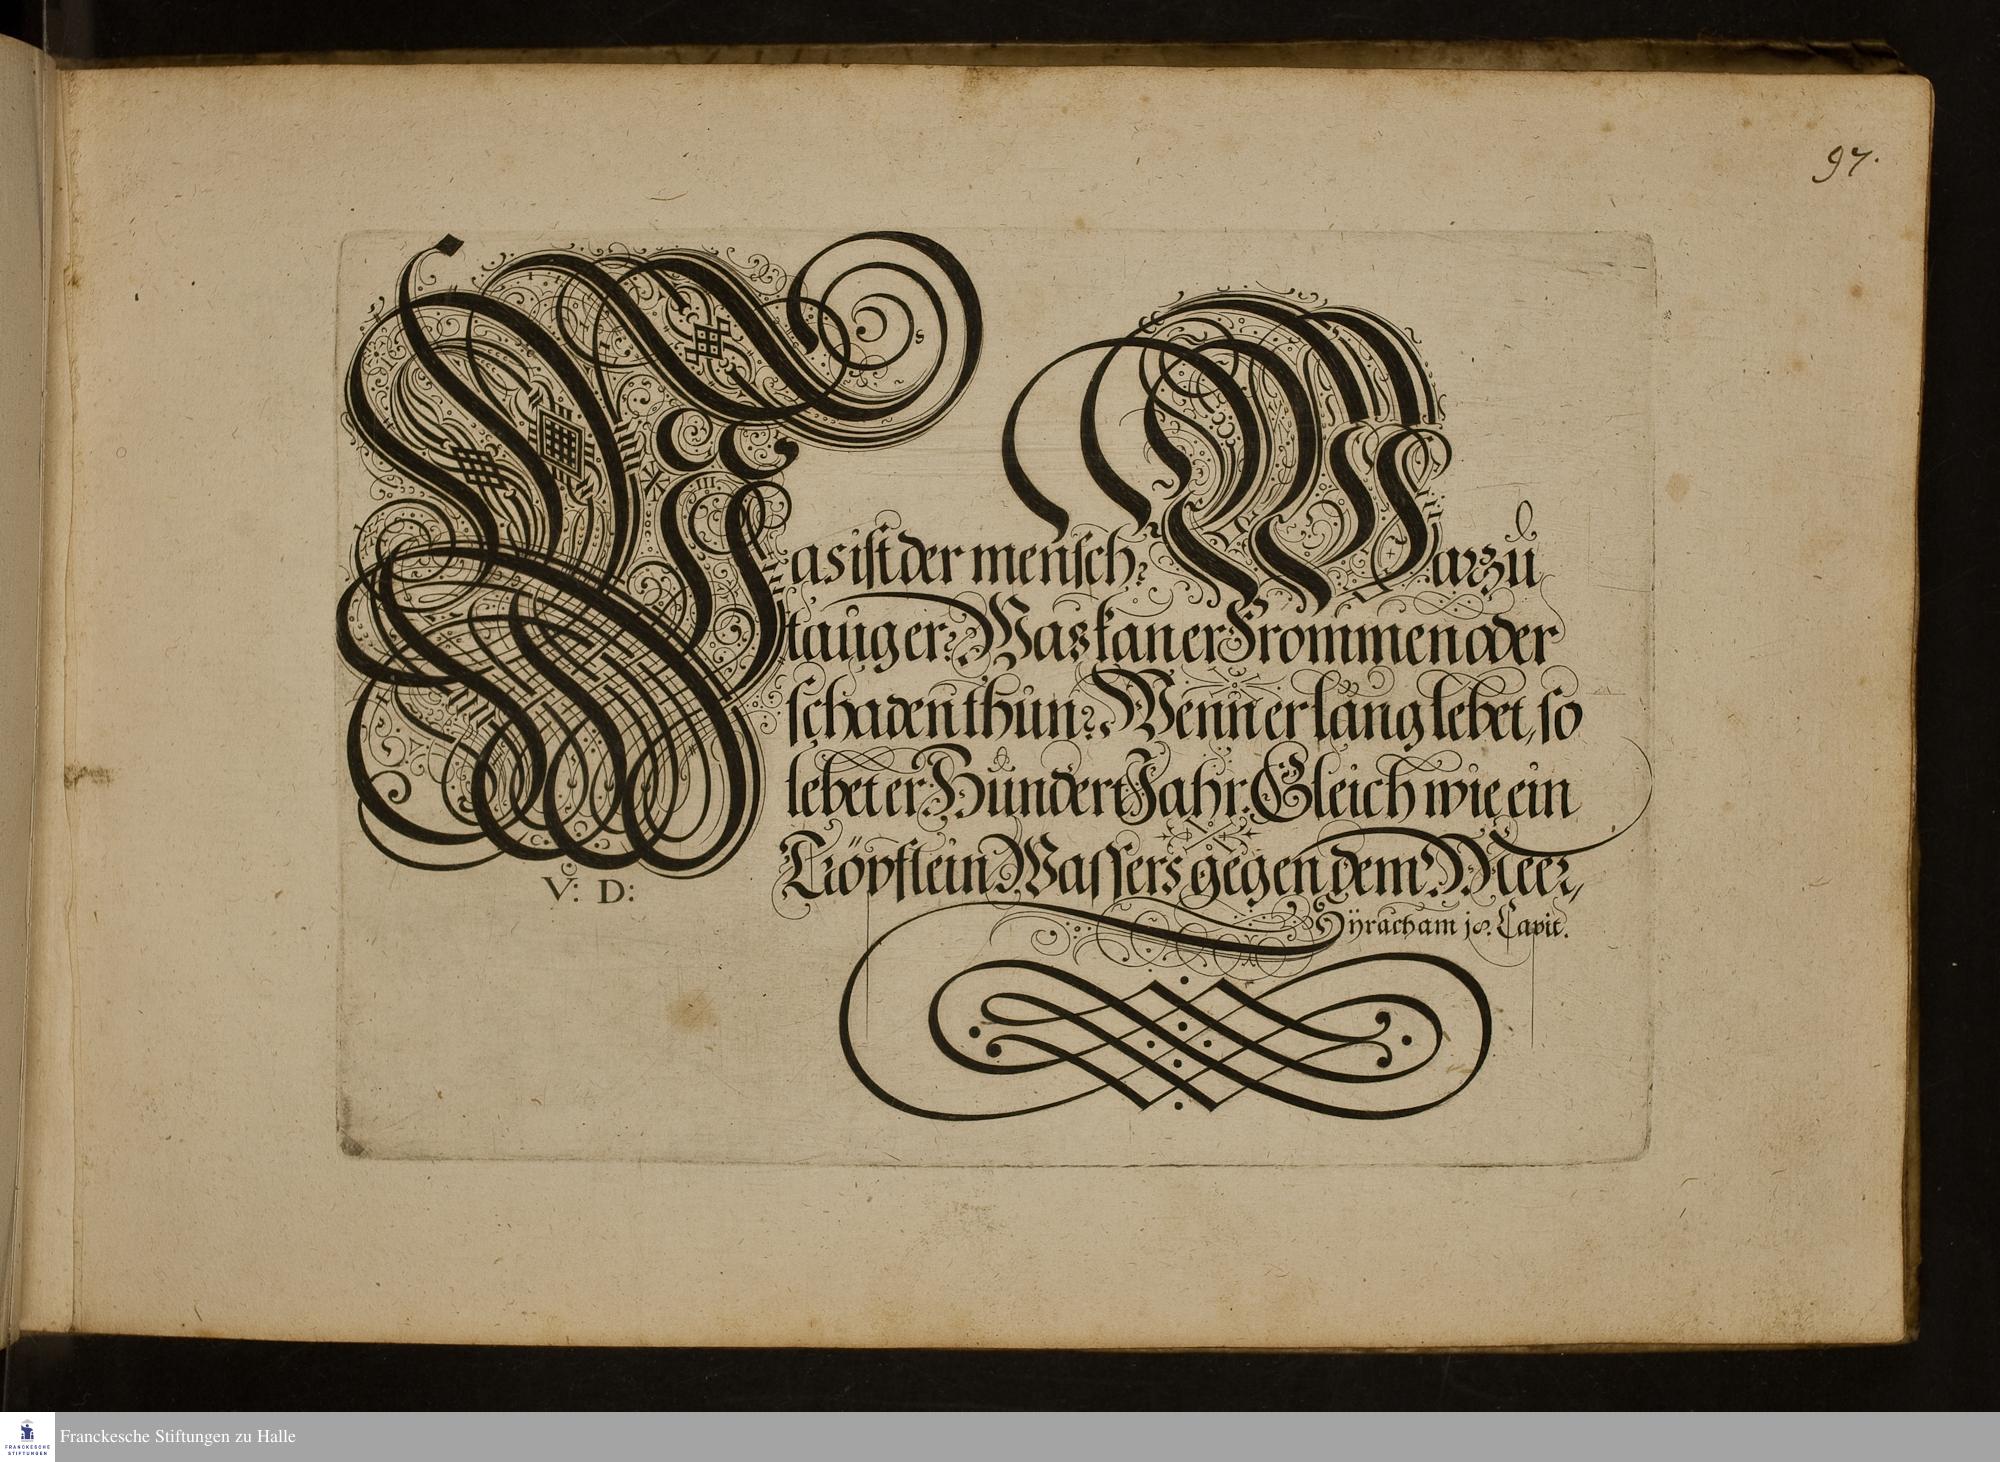 97.
Was ist der mensch? Warzu
taug er? Was kan er Frommen oder
schaden thun? Wenn er lang lebet, so
lebet er Hundert Jahr. Gleich wie ein
Tröpflein Wassers gegen dem Meer,
Syrach am 18. Capit.
V: D:
Franckesche Stiftungen zu Halle
FRANCKESCHE
STIFTUNGEN